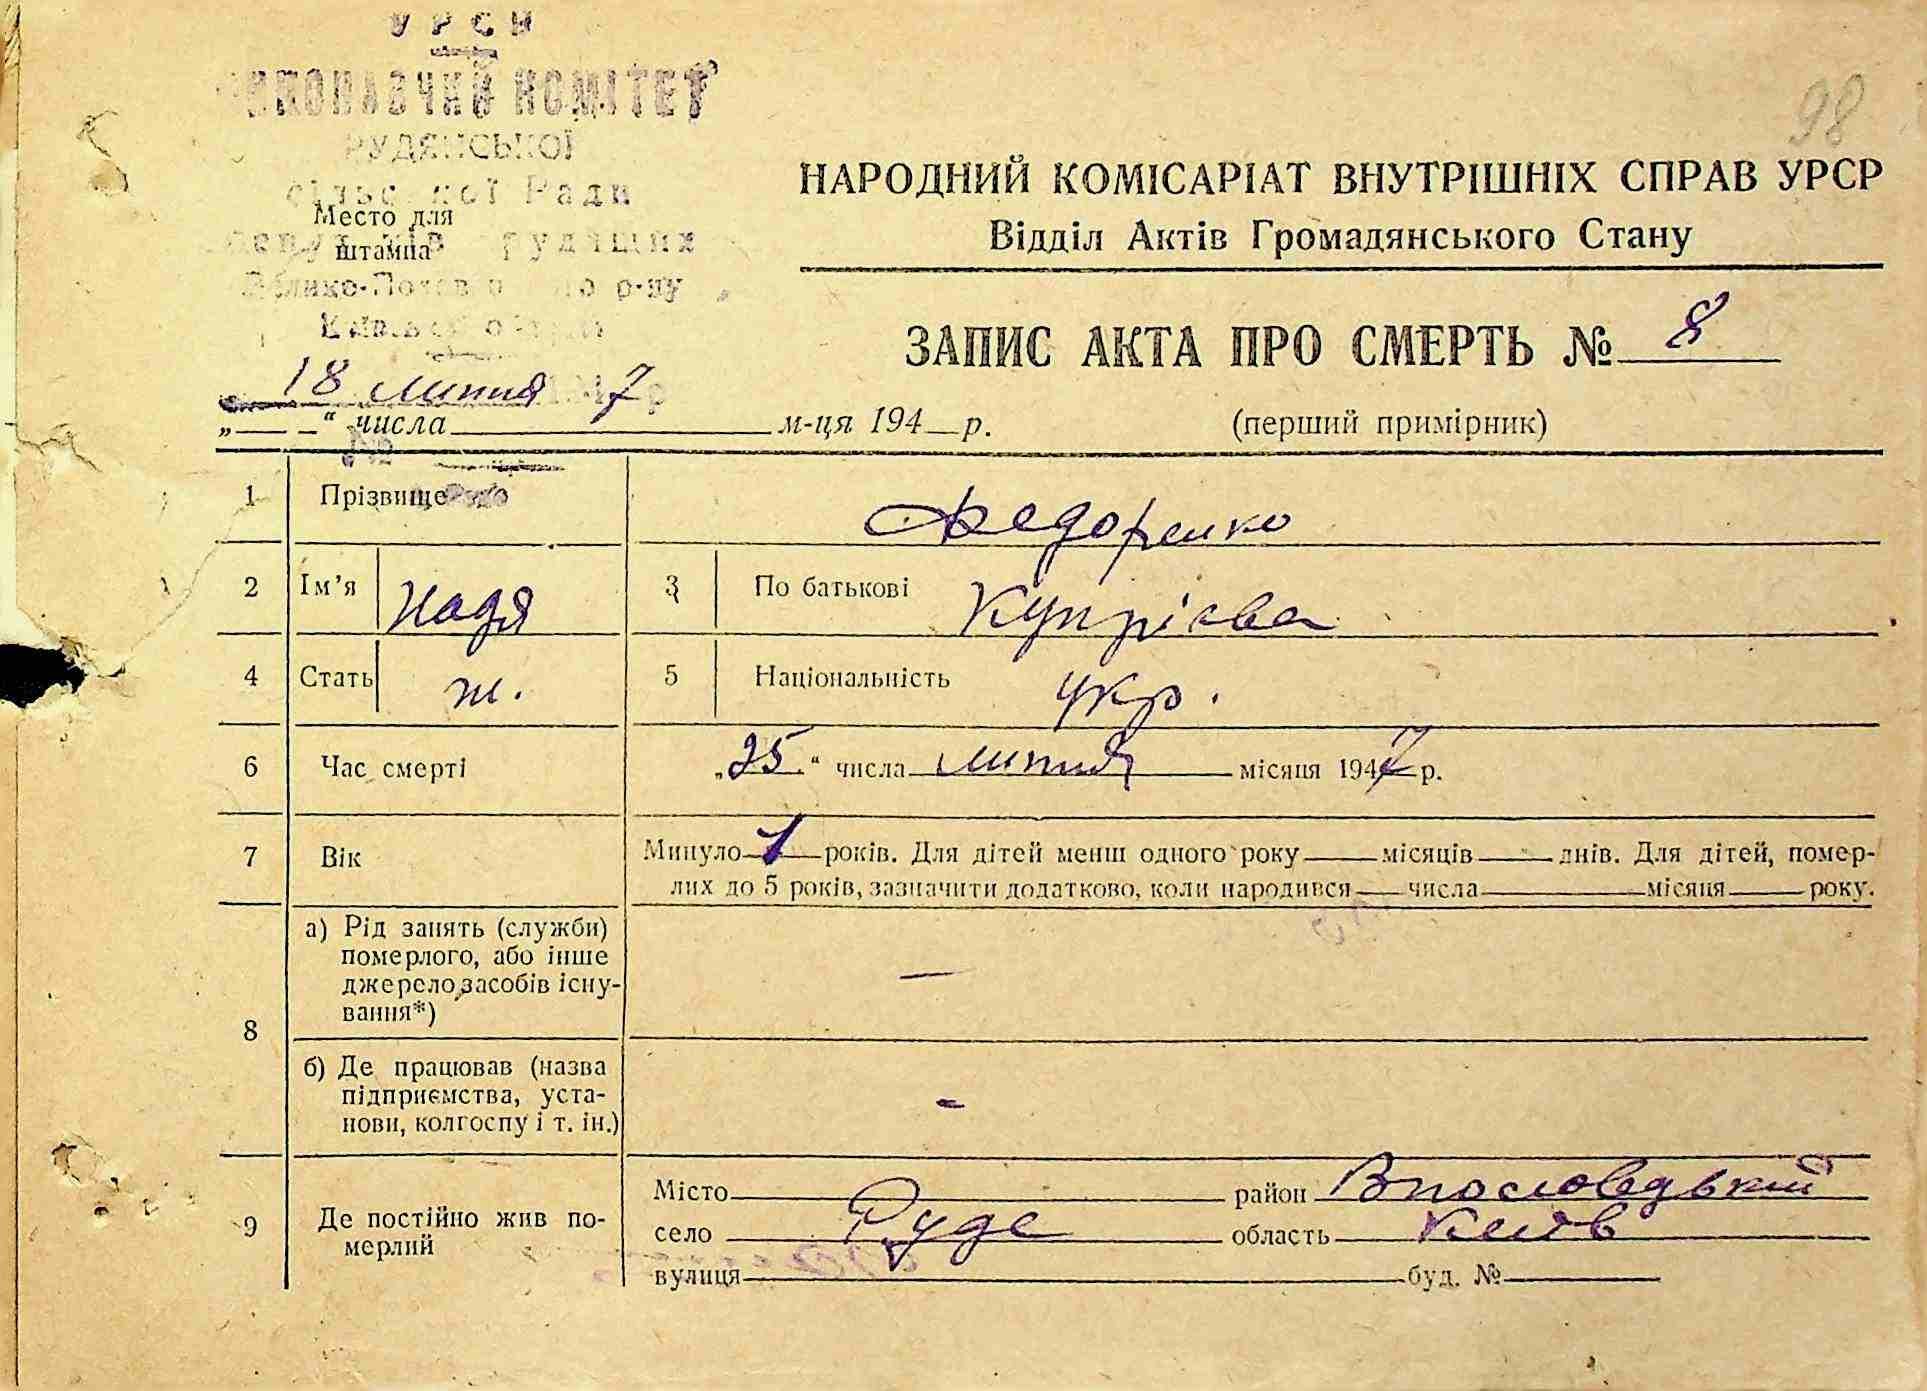 УРСР
ВИКОНАВЧИЙ КОМІТЕТ
РУДЯНСЬКОЇ
сільської Ради
Место для
штампа
Київської області
98
НАРОДНИЙ КОМІСАРІАТ ВНУТРІШНІХ СПРАВ УРСР
Відділ Актів Громадянського Стану
ЗАПИС АКТА ПРО СМЕРТЬ № 8
18 липня 7
„ “ числа м-ця 194 р. (перший примірник)
№
1 Прізвище Федоренко
2 Ім’я Надя 3 По батькові Купрієва
4 Стать ж. 5 Національність укр.
6 Час смерті „25“ числа липня місяця 1947 р.
7 Вік Минуло 1 років. Для дітей менш одного року місяців днів. Для дітей, помер-
лих до 5 років, зазначити додатково, коли народився числа місяця року.
8 а) Рід занять (служби)
померлого, або інше
джерело засобів існу-
вання*) —
б) Де працював (назва
підприємства, уста-
нови, колгоспу і т. ін.) -
9 Де постійно жив по-
мерлий
Місто район
село Руде область Київ
вулиця буд. №